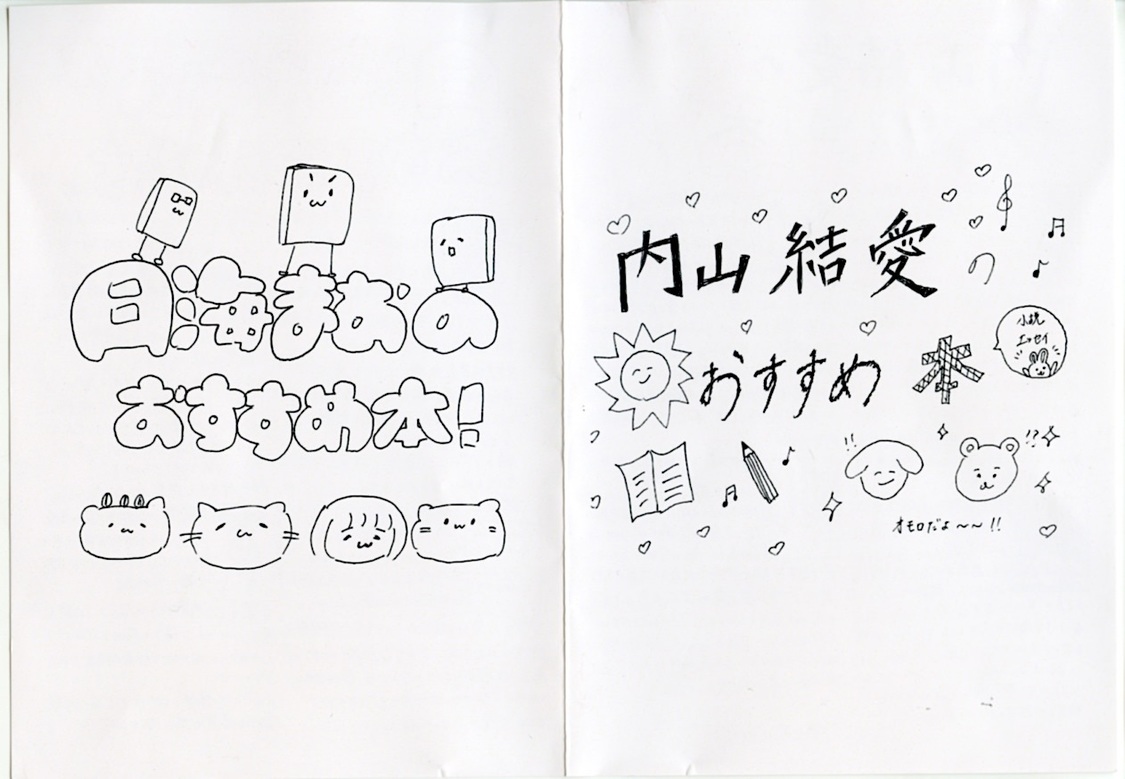 月海まおの
おすすめ本!
内山結愛の
おすすめ本
小説
エッセイ
!!
!?
オモロだよ〜〜!!